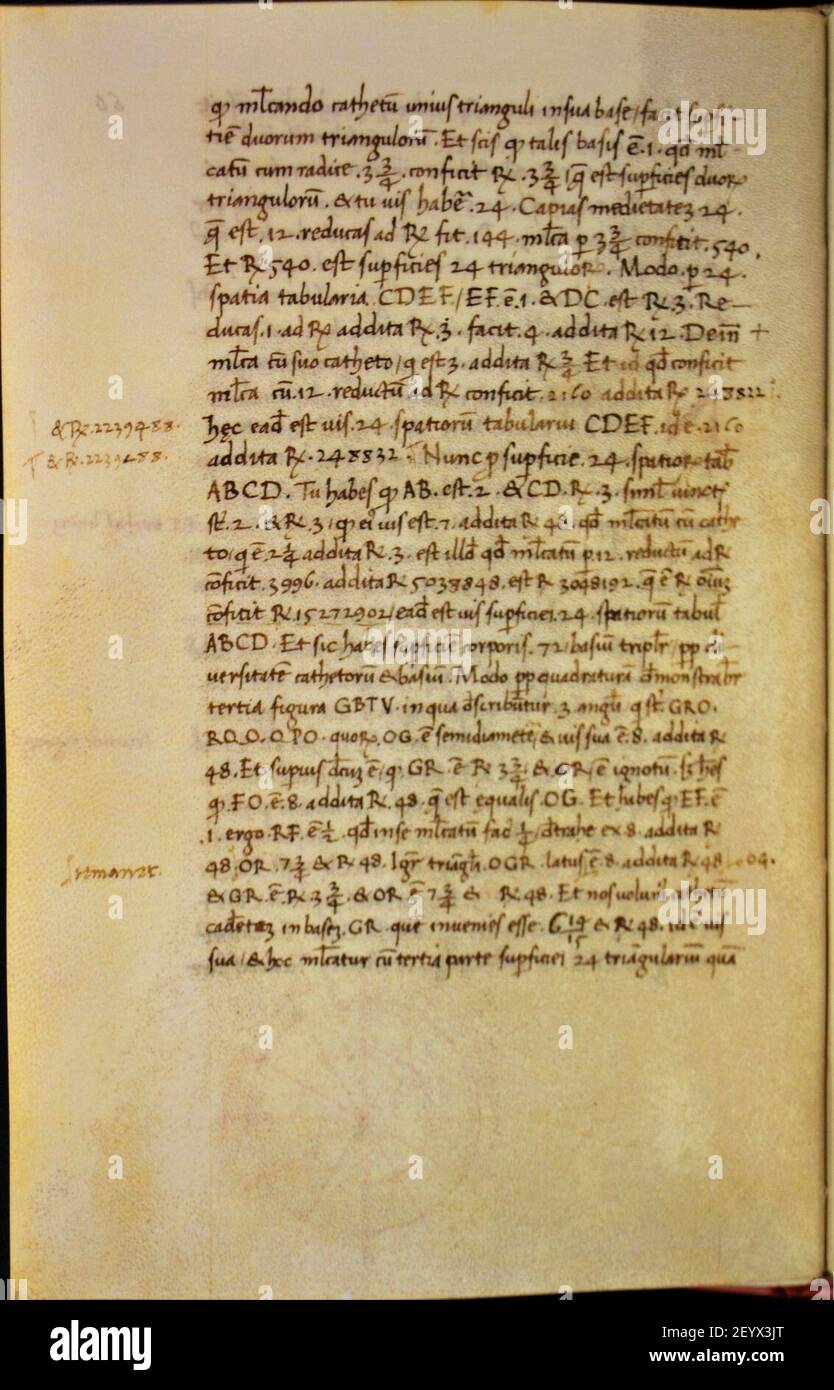 qꝫ ml̃cando cathetū unius trianguli in sua base / facit
tiē duorum triangulorū. Et scis qꝫ talis basis ē .1. qđ ml̃-
catū cum radice .3 3/4. conficit ℞. 3 3/4 / q̃ est supficies duoꝝ
triangulorū. & tu vis habẽ .24. Capias medietateʒ 24.
q̃ est .12. reducas ad ℞ fit .144. ml̃ca p 3 3/4 conficit .540.
Et ℞ 540. est supficies 24 trianguloꝝ. Modo p 24.
spatia tabularia CDEF / EF ē .1. & DC est ℞ 3. Re-
ducas .1. ad ℞ addita ℞ .3. facit .4. addita ℞ 12. Dein̄ +
ml̃ca cū suo catheto / q est 3. addita ℞ 3/4 Et id qđ conficit
ml̃ca cū .12. reductū ad ℞ conficit .2160 addita ℞
& ℞. 2239488.
& ℞. 2239488.
hęc eađ est vis .24. spatiorū tabulariū CDEF. id ē. 2160
addita ℞. 248832. Nunc p supficie .24. spatioꝝ tab̃
ABCD. Tu habes qꝫ AB. est .2. & CD. ℞. 3. siml̃ iuncti
st̄ .2. & ℞. 3 / qꝫ eiꝰ vis est .7. addita ℞ 48. qđ ml̃catū cū cathe
to / q ē 2 1/4 addita ℞. 3. est illđ qđ ml̃catū p 12. reductū ad ℞
cōficit. 3996. addita ℞ 5038848. est ℞ q̃ ē ℞
cōficit ℞. 15272902 / eađ est vis supficiei .24. spatiorū tabul̃
ABCD. Et sic habes supficiē corporis .72. basiū triplr̃ / pp di-
versitatē cathetorū & basiū. Modo pp quadraturā đmonstrabr̃
tertia figura GBTV. in qua đscribūtur .3 angl̃i q st̄. GRO.
RQO. QPO. quoꝝ. OG. ē semidiameter & vis sua ē .8. addita ℞
48. Et supius ē / qꝫ GR. ē ℞ 3 3/4 / & OR / ē ignotū. sʒ
qꝫ FO. ē .8. addita ℞. 48. q̃ est equalis. OG. Et habes qꝫ EF. ē
.1. ergo. RF. ē 1/2. qđ in se ml̃catum fac̄ 1/4 / đtrahe ex 8. addita ℞
48. OR. 7 3/4 & ℞ 48. Igr̃ triangl̃i. OGR. latus ē .8. addita ℞ 48
& GR. ē. ℞ 3 3/4. & OR ē 7 3/4 & ℞ 48. Et nos volumus
cađetē in baseʒ. GR. que invenies esse. 6 14/15 & ℞ 48. vis
sua / & hoc ml̃catur cū tertia parte supficiei 24 triāgularium quā
alamy
Image ID: 2EYX3JT
www.alamy.com